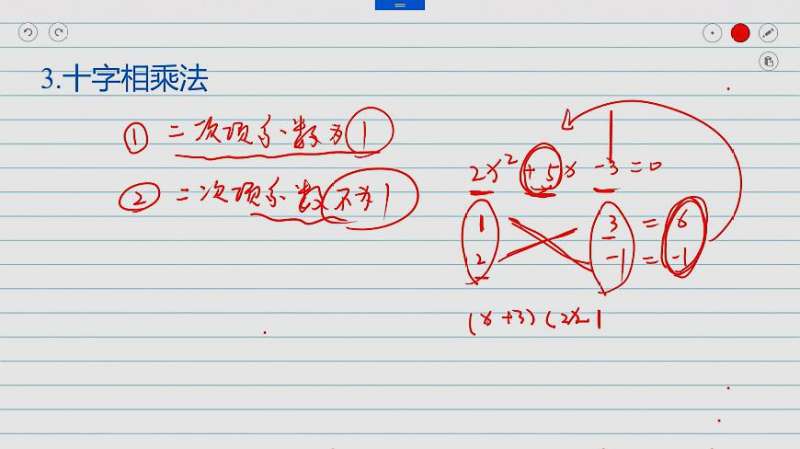 3.十字相乘法
① 二次项系数为1
② 二次项系数不为1
2x² + 5x - 3 = 0
1 3 = 6
2 -1 = -1
(x+3)(2x-1